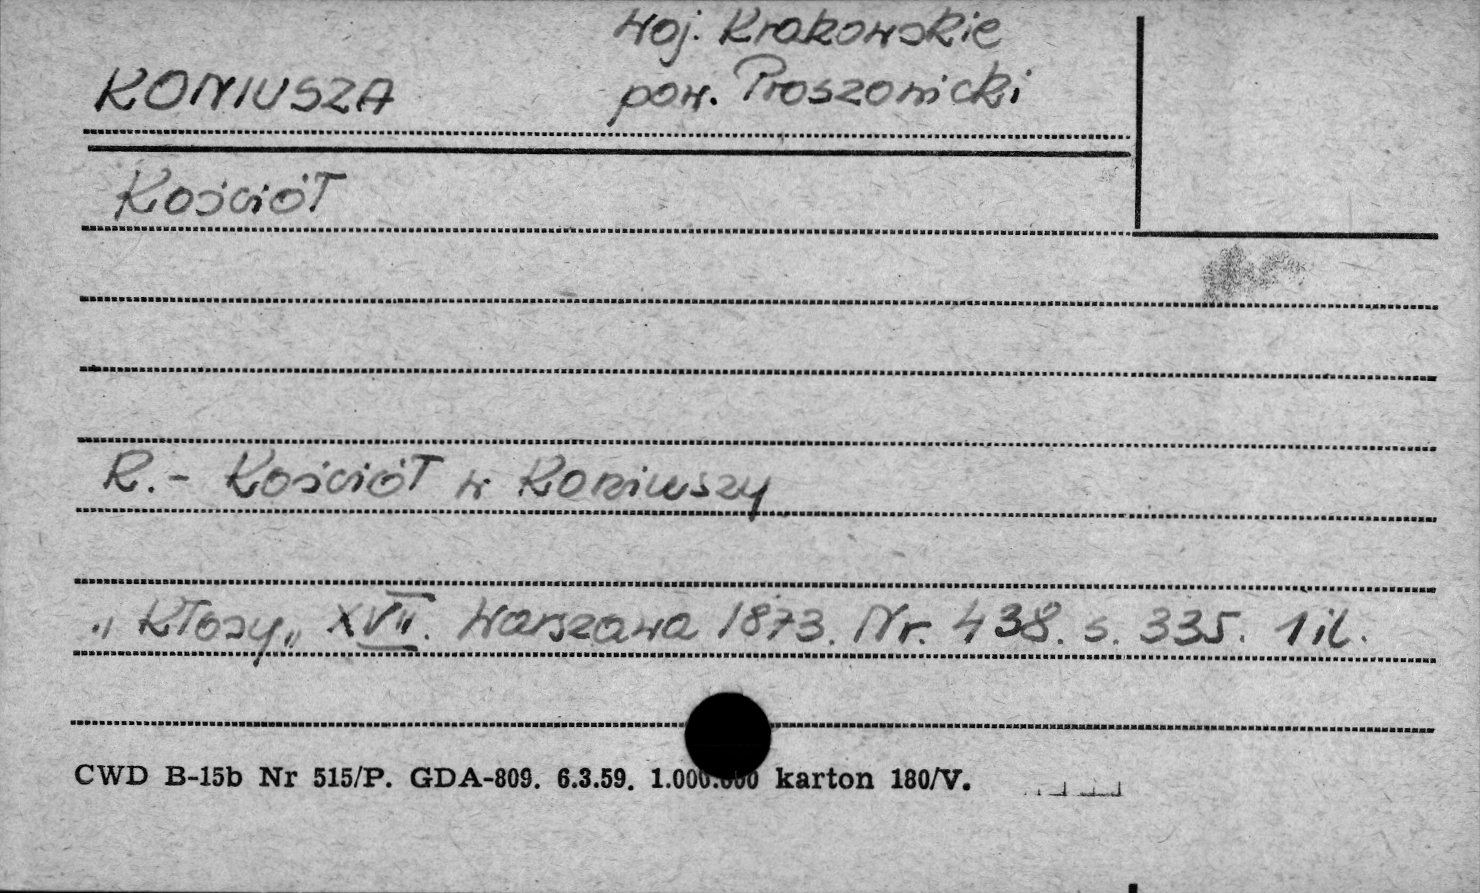 woj. Krakowskie
KONIUSZA pow. Proszowicki
Kościół
R. - Kościół w Koniuszy
"Kłosy" XVII. Warszawa 1873. Nr. 438. s. 335. 1 il.
CWD B-15b Nr 515/P. GDA-809. 6.3.59. 1.000.000 karton 180/V.